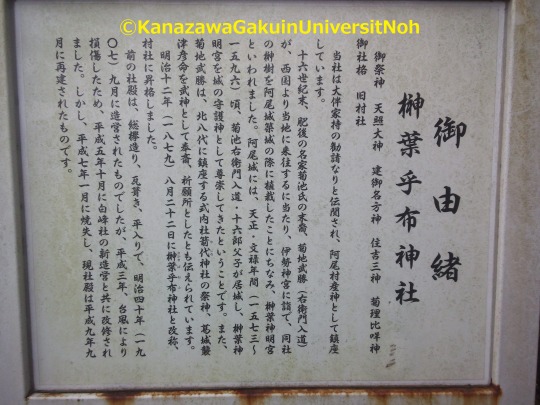 ©KanazawaGakuinUniversitNoh
御由緒
榊葉乎布神社
御祭神　天照大神　建御名方神　住吉三神　菊理比咩神
御社格　旧村社
当社は大伴家持の勧請なりと伝聞され、阿尾村産神として鎮座
しています。
十六世紀末、肥後の名家菊池氏の末裔、菊地武勝（右衛門入道）
が、西国より当地に来往するに当たり、伊勢神宮に詣で、同社
の榊樹を阿尾城築城の際に植栽したことにちなみ、榊葉神明宮
といわれました。阿尾城には、天正・文禄年間（一五七三～
一五九六）頃、菊池右衛門入道・十六郎父子が居城し、榊葉神
明宮を城の守護神として尊崇してきたということです。また、
菊地武勝は、北八代に鎮座する式内社箭代神社の祭神、葛城襲
津彦命を武神として奉斎、祈願所としたとも伝えられています。
明治十二年（一八七九）八月二十二日に榊葉乎布神社と改称、
村社に昇格しました。
前の社殿は、総欅造り、瓦葺き、平入りで、明治四十年（一九
〇七）九月に造営されたものでしたが、平成三年、台風により
損傷したため、平成五年十月に白峰社の新造営と共に改修され
ました。しかし、平成七年一月に焼失し、現社殿は平成九年九
月に再建されたものです。